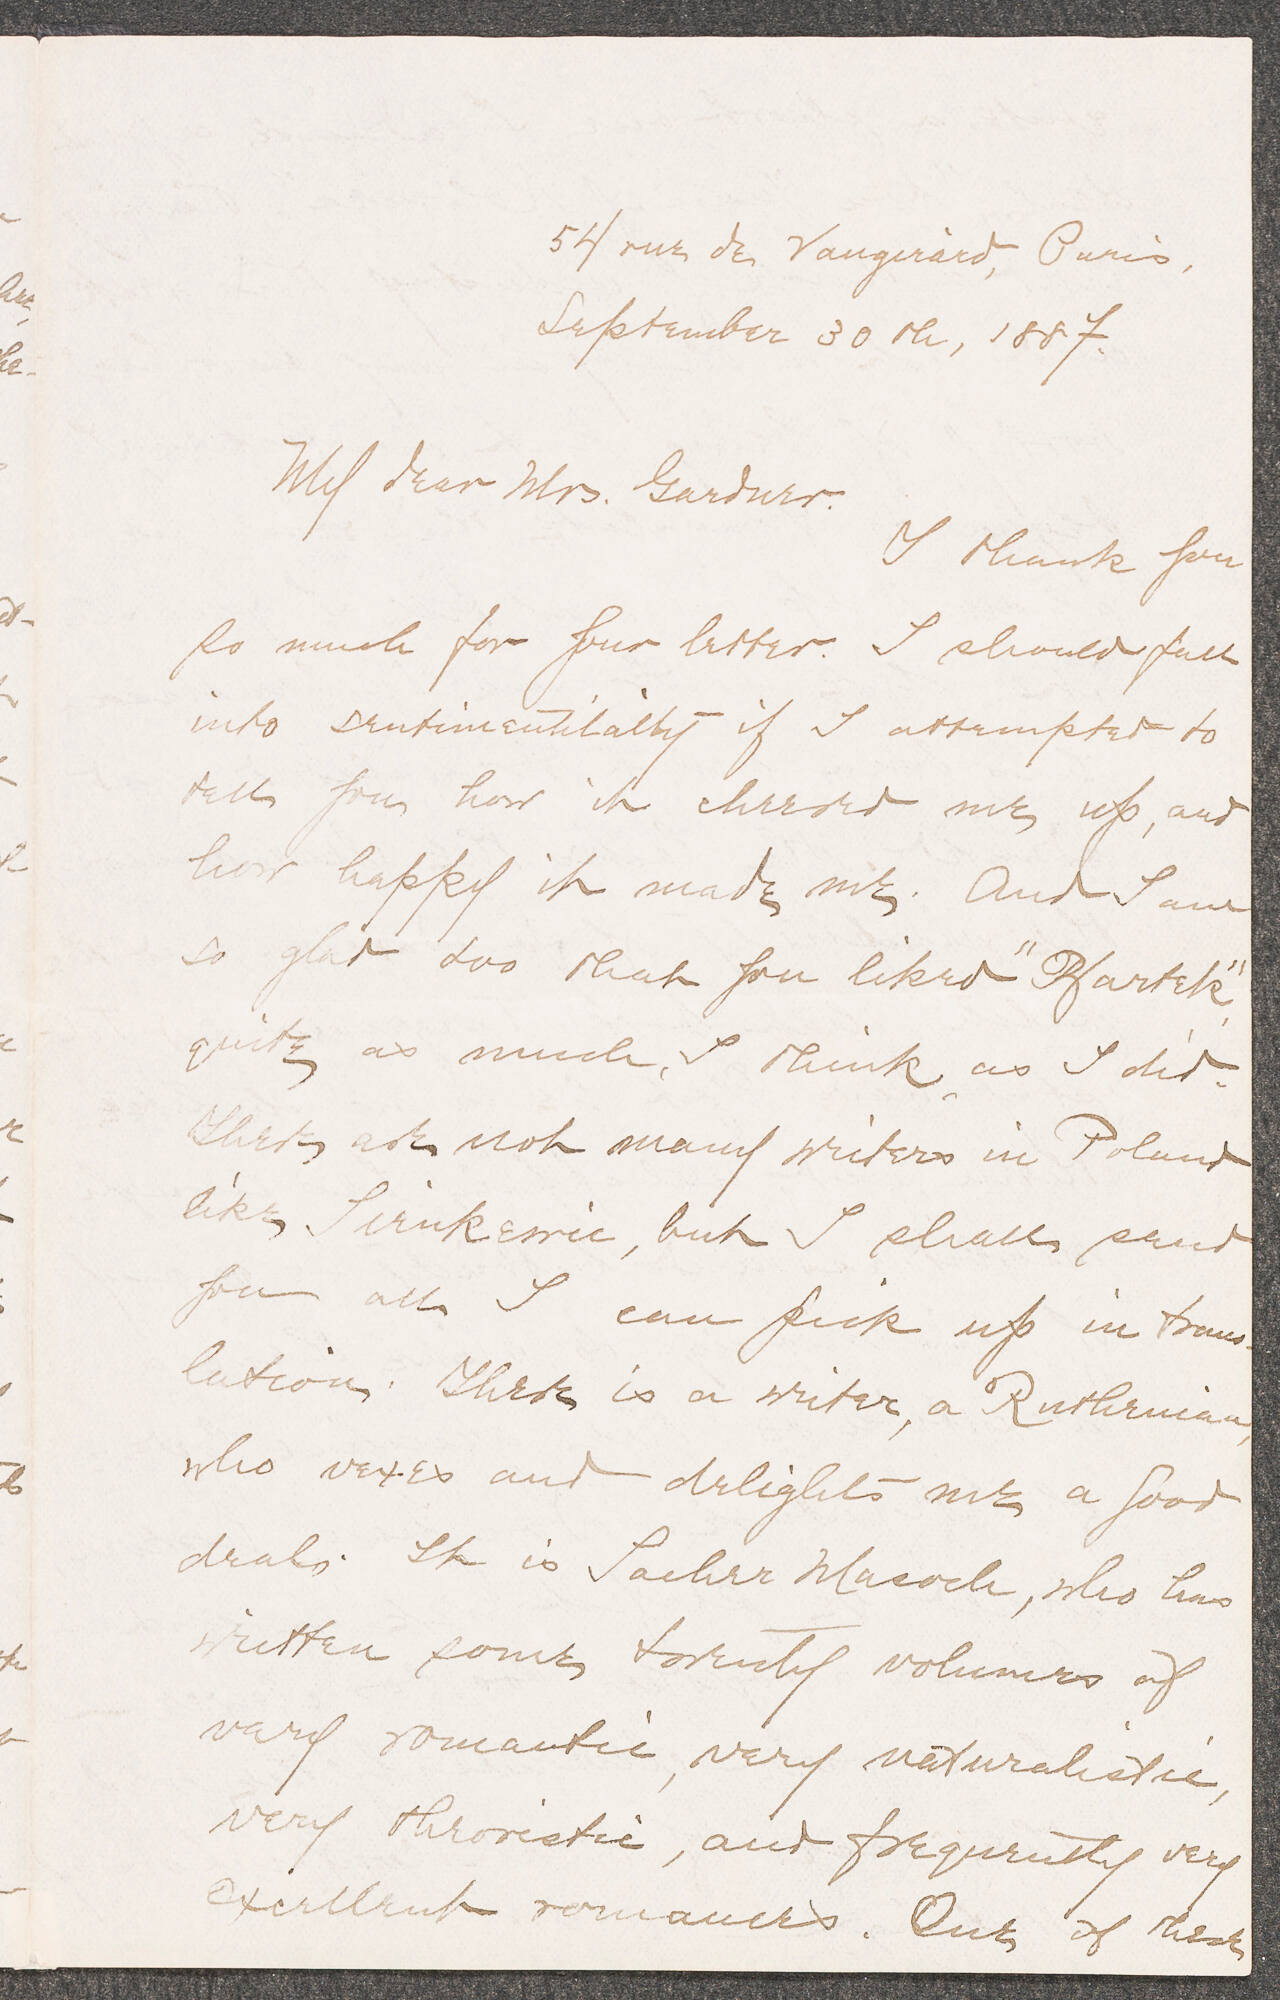 54 rue de Vaugirard, Paris,
September 30th, 1887.
My dear Mrs. Gardner.
I thank you
so much for your letter. I should fall
into sentimentilality if I attempted to
tell you how it cheered me up, and
how happy it made me. And I am
so glad too that you liked "Bartek",
quite as much, I think, as I did.
There are not many writers in Poland
like Sienkewic, but I shall send
you all I can pick up in trans-
lation. There is a writer, a Ruthenian,
who vexes and delights me a good
deal. It is Sacher Masoch, who has
written some twenty volumes of
very romantic, very naturalistic,
very theoristic, and frequently very
excellent romances. One of these